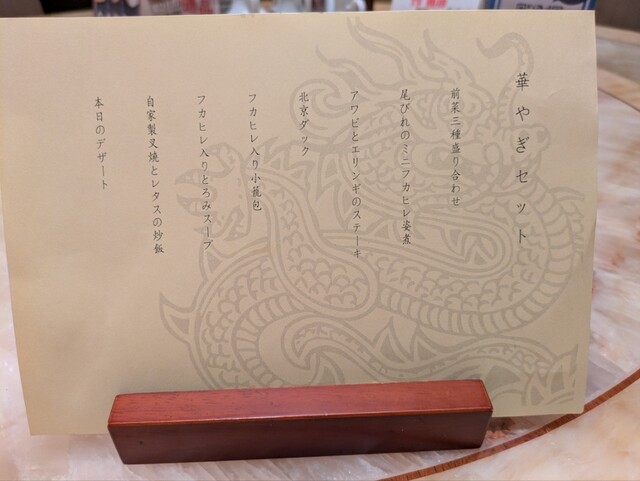 華やぎセット
前菜三種盛り合わせ
尾びれのミニフカヒレ姿煮
アワビとエリンギのステーキ
北京ダック
フカヒレ入り小籠包
フカヒレ入りとろみスープ
自家製叉焼とレタスの炒飯
本日のデザート